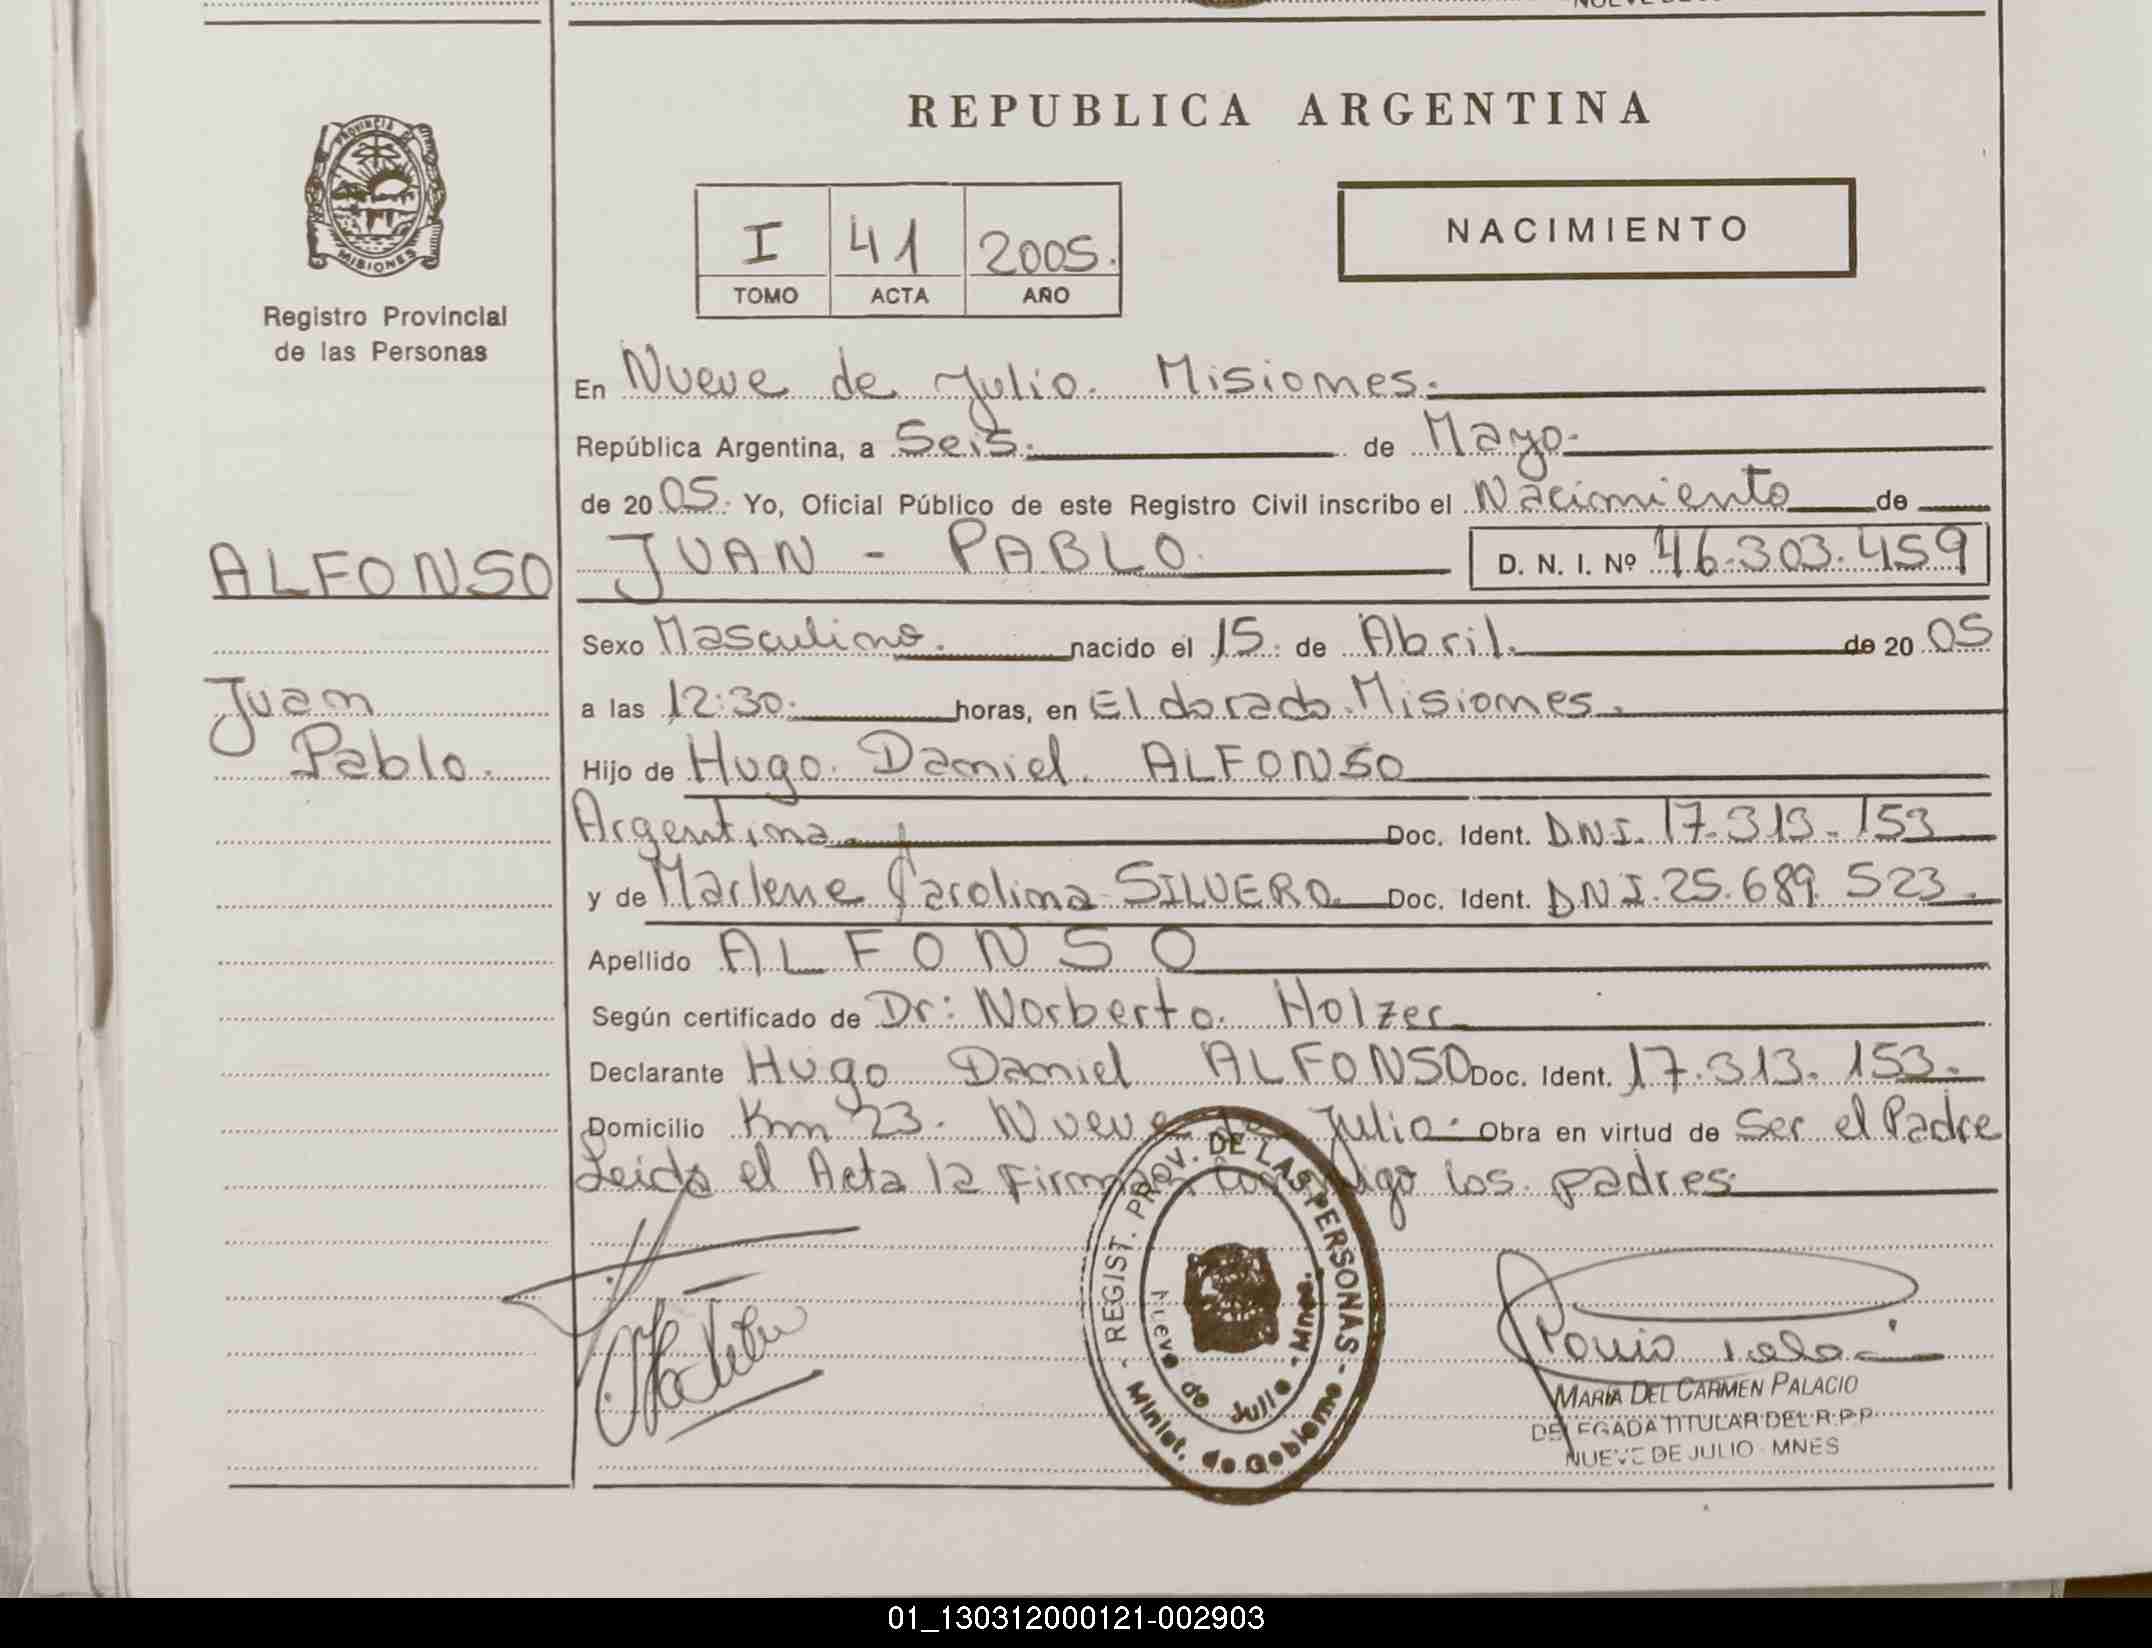 REPUBLICA ARGENTINA
PROVINCIA DE
MISIONES
Registro Provincial
de las Personas
I 41 2005.
TOMO ACTA AÑO
NACIMIENTO
En Nueve de Julio. Misiones.
República Argentina, a Seis. de Mayo.
de 20 05. Yo, Oficial Público de este Registro Civil inscribo el Nacimiento de
ALFONSO
JUAN - PABLO. D. N. I. Nº 46.303.459
Sexo Masculino. nacido el 15. de Abril. de 20 05
Juan
Pablo.
a las 12:30. horas, en Eldorado. Misiones.
Hijo de Hugo Daniel ALFONSO
Argentina. Doc. Ident. D.N.I. 17.313.153
y de Marlene Carolina SILVERO Doc. Ident. DNI.25.689.523.
Apellido ALFONSO
Según certificado de Dr: Norberto Holzer
Declarante Hugo Daniel ALFONSO Doc. Ident. 17.313.153.
Domicilio Km 23. Nueve de Julio. Obra en virtud de Ser el Padre
Leida el Acta la Firman Conmigo los padres
REGIST. PROV. DE LAS PERSONAS
Nueve de Julio - Mnes.
Minist. de Gobierno
MARIA DEL CARMEN PALACIO
DELEGADA TITULAR DEL R.P.P.
NUEVE DE JULIO - MNES
01_130312000121-002903